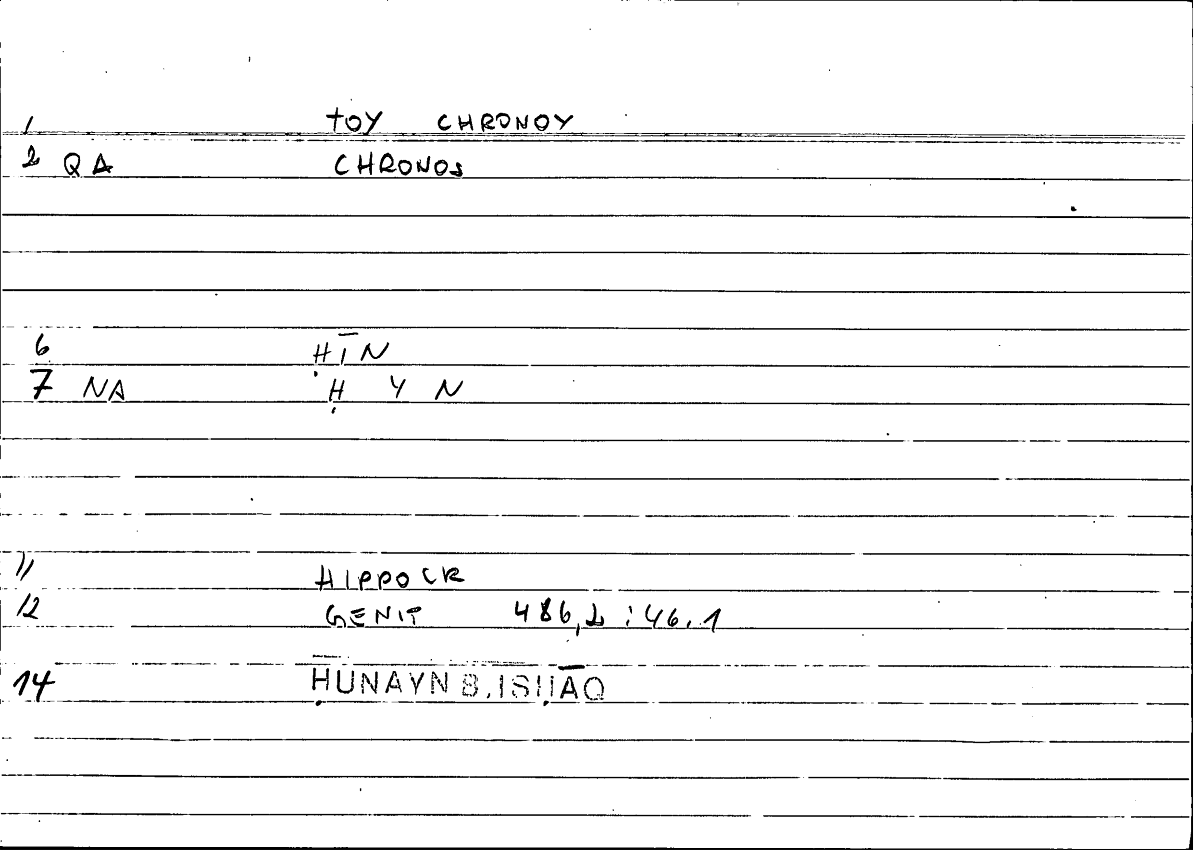 1 TOY CHRONOY
2 QA CHRONOS
6 ḤĪN
7 NA Ḥ Y N
11 HIPPOCR
12 GENIT 486,2 : 46.1
14 ḤUNAYN B. ISḤĀQ